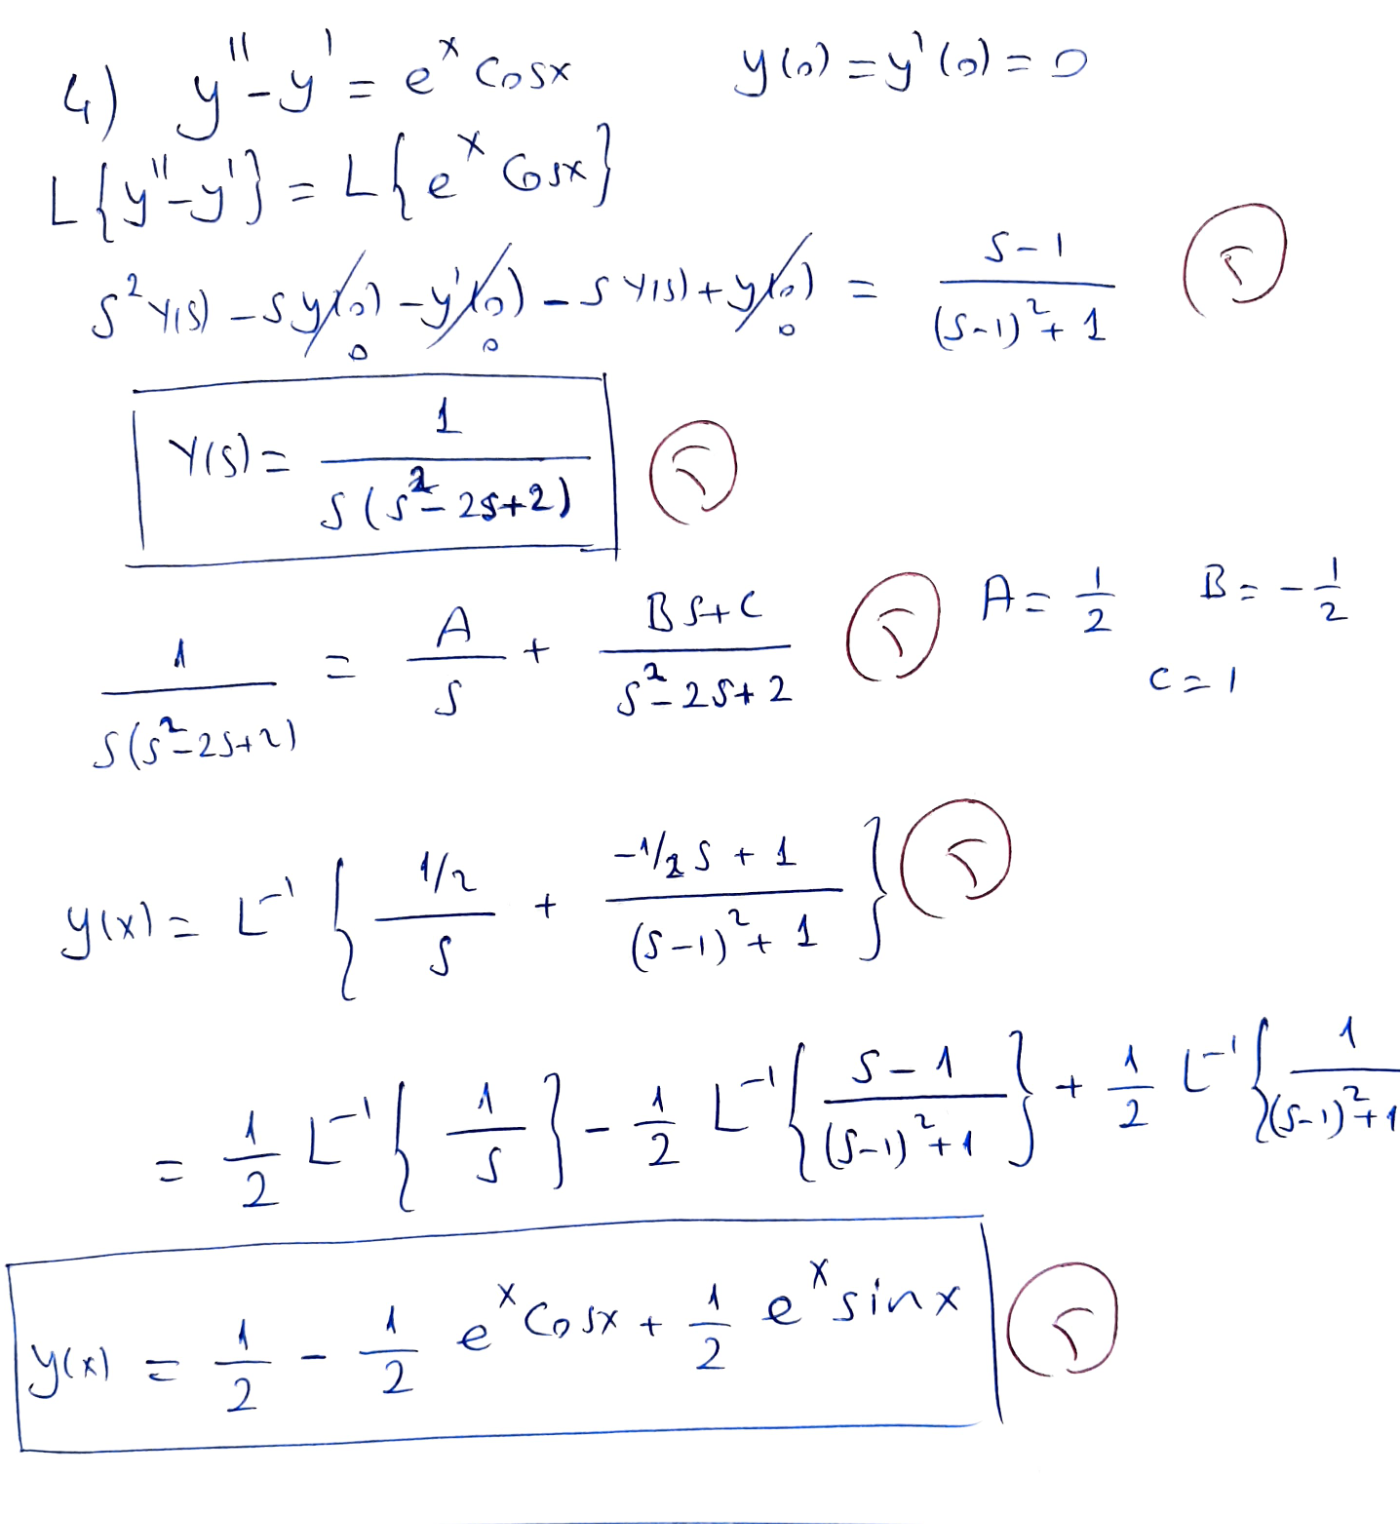 4) y'' - y' = e^x Cosx y(0) = y'(0) = 0
L{y''-y'} = L{e^x Cosx}
s^2 Y(s) - s y(0) - y'(0) - s Y(s) + y(0) = (s-1)/((s-1)^2 + 1) 5
0 0 0
Y(s) = 1/(s(s^2 - 2s + 2)) 5
1/(s(s^2 - 2s + 2)) = A/s + (Bs + C)/(s^2 - 2s + 2) 5 A = 1/2 B = -1/2
C = 1
y(x) = L^-1 { (1/2)/s + (-1/2 s + 1)/((s-1)^2 + 1) } 5
= 1/2 L^-1 { 1/s } - 1/2 L^-1 { (s-1)/((s-1)^2 + 1) } + 1/2 L^-1 { 1/((s-1)^2 + 1
y(x) = 1/2 - 1/2 e^x Cosx + 1/2 e^x sinx 5